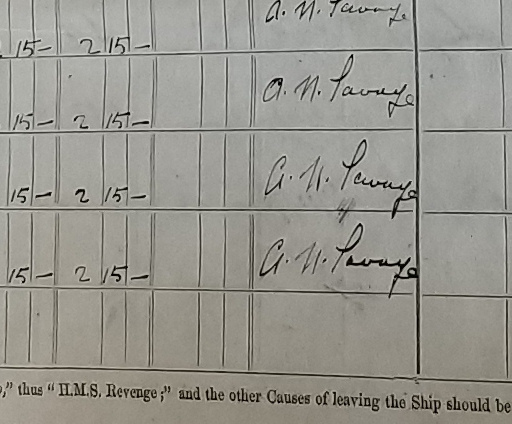 15- 2 15- A. N. Savage
15- 2 15- A. N. Savage
15- 2 15- A. N. Savage
15- 2 15- A. N. Savage
," thus "H.M.S. Revenge;" and the other Causes of leaving the Ship should be